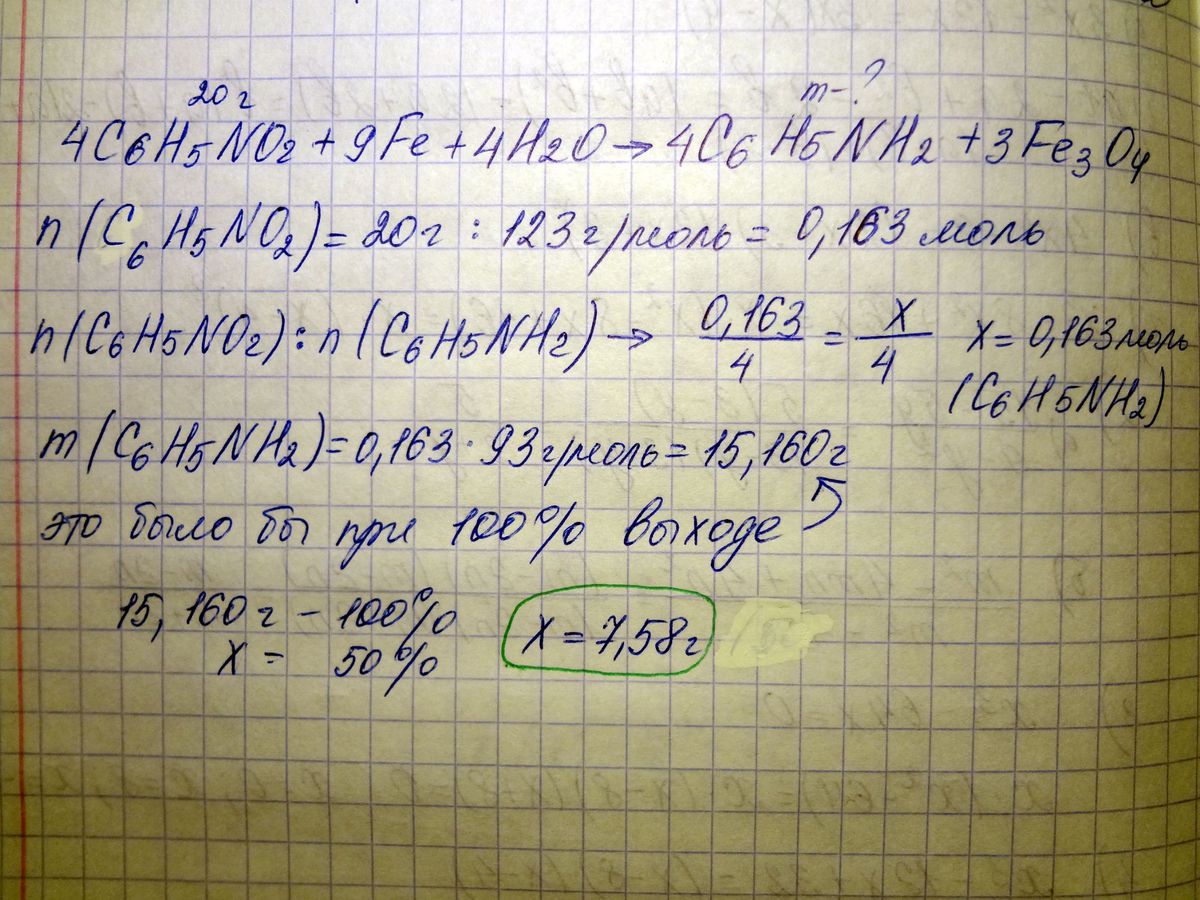 20г
m-?
4C6H5NO2 + 9Fe + 4H2O → 4C6H5NH2 + 3Fe3O4
n(C6H5NO2) = 20г : 123г/моль = 0,163 моль
n(C6H5NO2) : n(C6H5NH2) → 0,163/4 = X/4 X = 0,163моль
(C6H5NH2)
m(C6H5NH2) = 0,163 · 93г/моль = 15,160г
это было бы при 100% выходе
15,160г - 100%
X = 50%
X = 7,58г